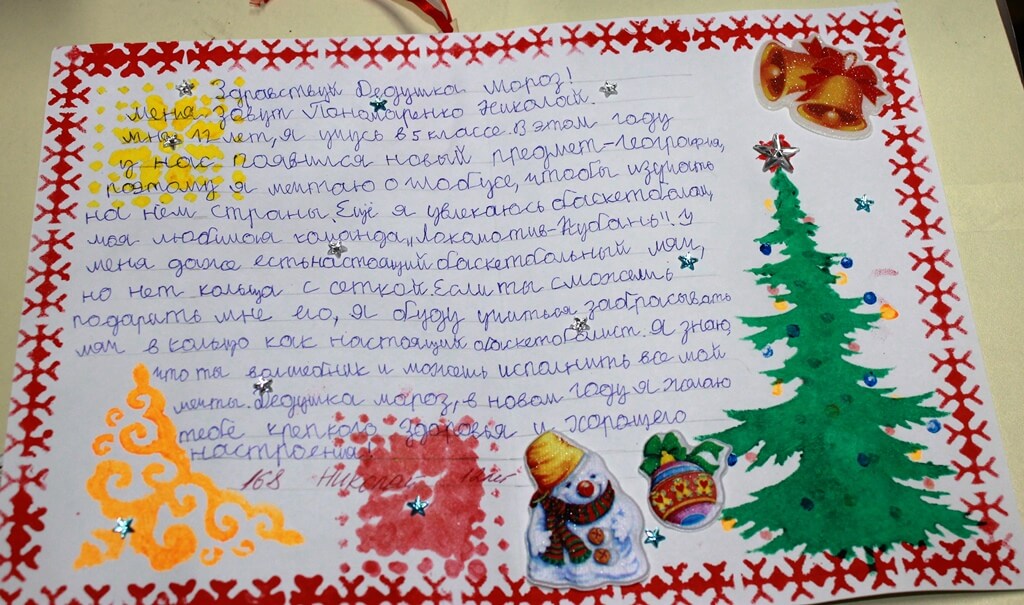 Здравствуй Дедушка мороз!
Меня зовут Пономаренко Николай.
мне 12 лет, я учусь в 5 классе. В этом году
у нас появился новый предмет-география,
поэтому я мечтаю о глобусе, чтобы изучать
на нём страны. Ещё я увлекаюсь баскетболом,
моя любимая команда „Локомотив-Кубань"! У
меня даже есть настоящий баскетбольный мяч,
но нет кольца с сеткой. Если ты сможешь
подарить мне его, я буду учиться забрасывать
мяч в кольцо как настоящий баскетболист. Я знаю,
что ты волшебник и можешь исполнить все мои
мечты. Дедушка мороз, в новом году я желаю
тебе крепкого здоровья и хорошего
настроения!
168 Николай